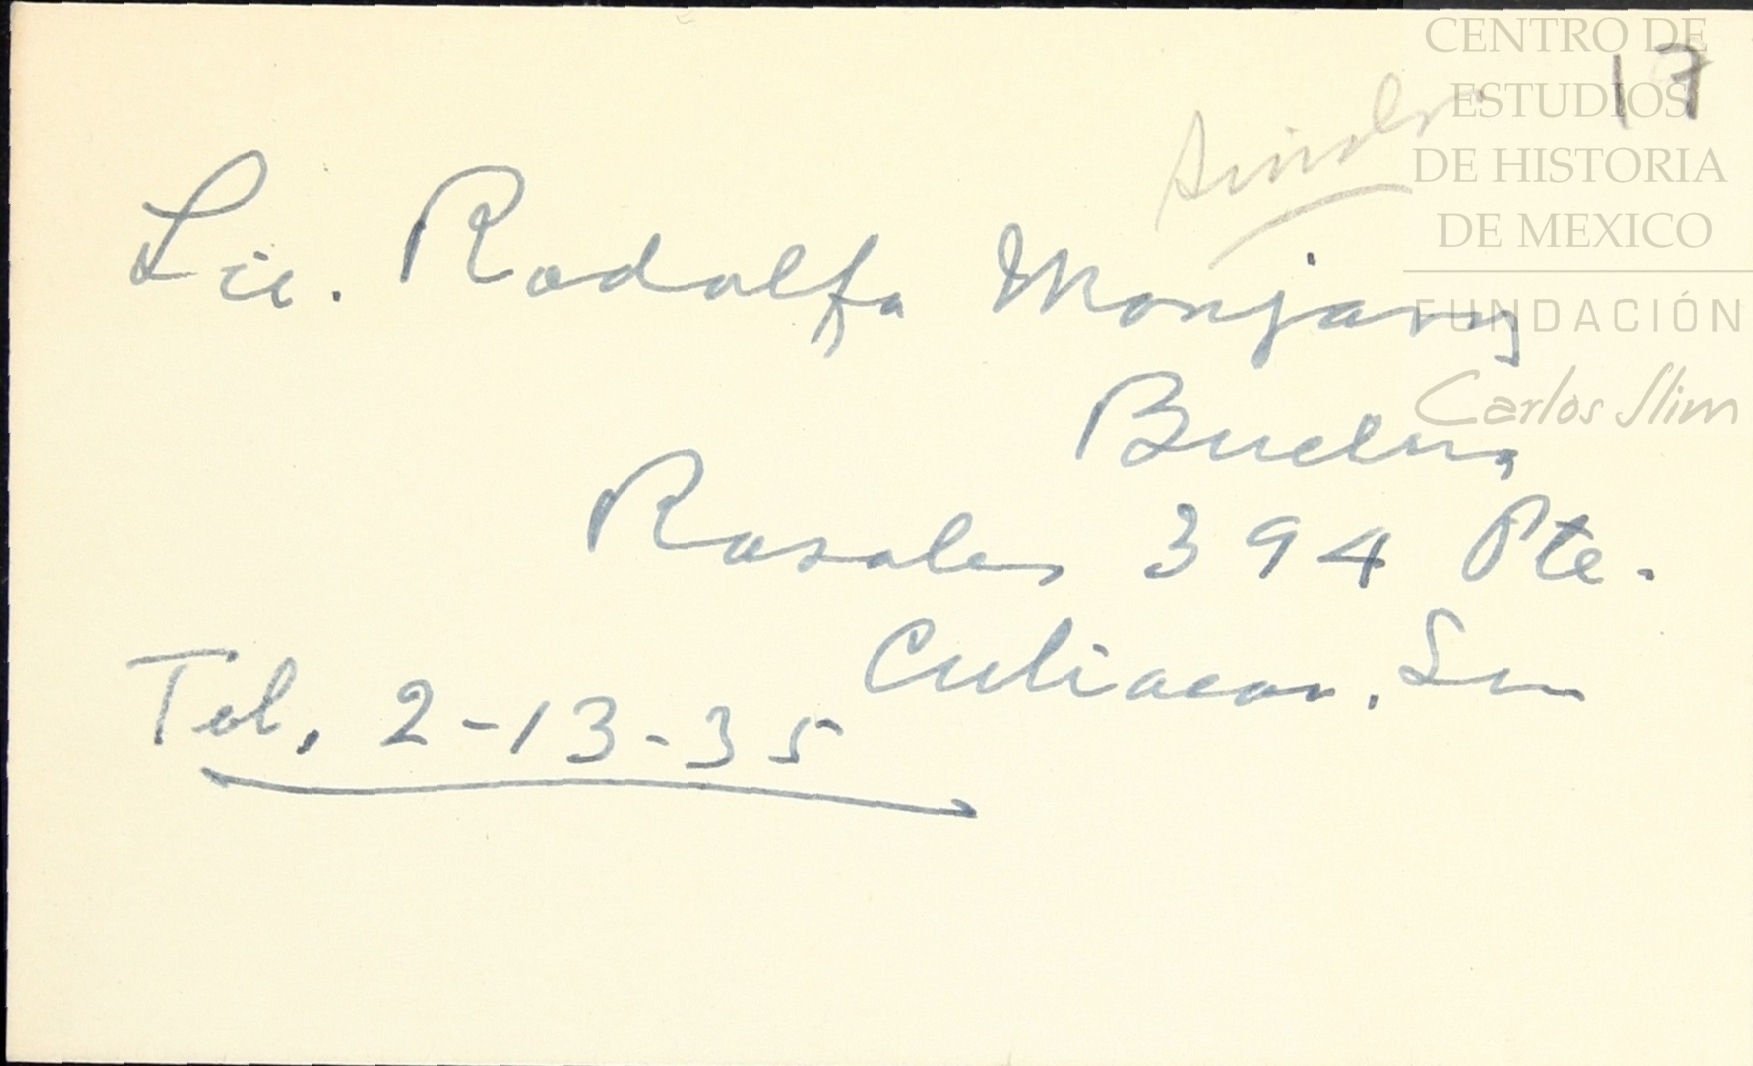 CENTRO DE
17
ESTUDIOS
DE HISTORIA
DE MEXICO
FUNDACIÓN
Carlos Slim
Sinaloa
Lic. Rodolfo Monjaraz
Buelna
Rosales 394 Pte.
Culiacan. Sin
Tel. 2-13-35